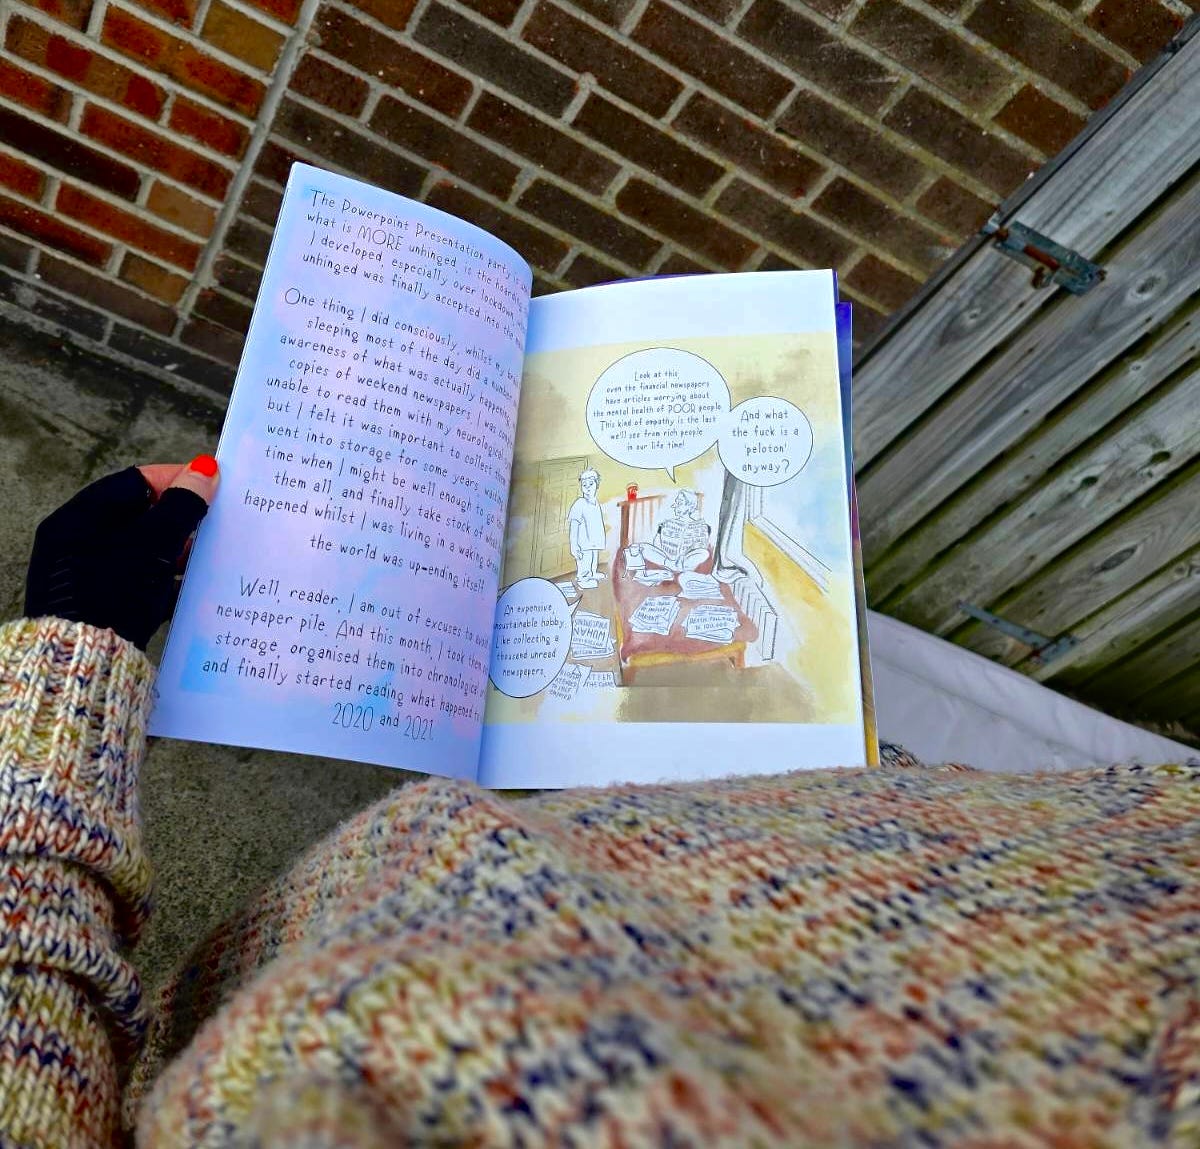 The Powerpoint Presentation party
what is MORE unhinged, is the
I developed, especially over lockdown,
unhinged was finally accepted into the
One thing I did consciously, whilst my
sleeping most of the day did a
awareness of what was actually happening,
copies of weekend newspapers. I was
unable to read them with my neurological
but I felt it was important to collect
went into storage for some years,
time when I might be well enough to go
them all, and finally, take stock of
happened whilst I was living in a waking
the world was up-ending itself.
Well, reader, I am out of excuses to
newspaper pile. And this month, I took
storage, organised them into chronological
and finally started reading what happened
2020 and 2021.
Look at this,
even the financial newspapers
have articles worrying about
the mental health of POOR people.
This kind of empathy is the last
we'll see from rich people
in our life time!
And what
the fuck is a
'peloton'
anyway?
An expensive,
unsustainable hobby.
Like collecting a
thousand unread
newspapers.
DEATH TOLL
TO 100,000